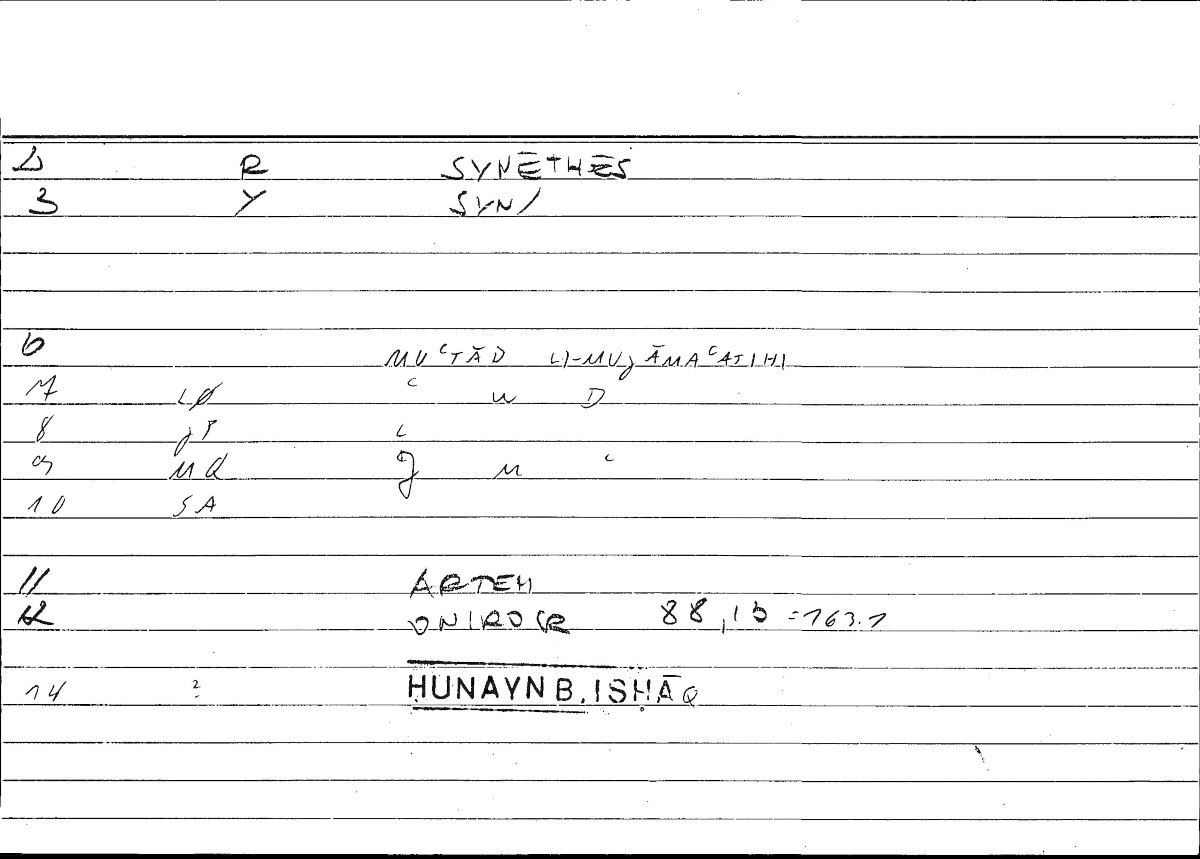 2 R SYNĒTHĒS
3 Y SYN/
6 MUʿTĀD LI-MUǧĀMAʿATIHI
7 LØ ʿ W D
8 ǧP L
9 MQ ǧ M ʿ
10 SA
11 ARTEM
12 ONIROCR 88,15 =163.1
14 ? ḤUNAYN B. ISḤĀQ